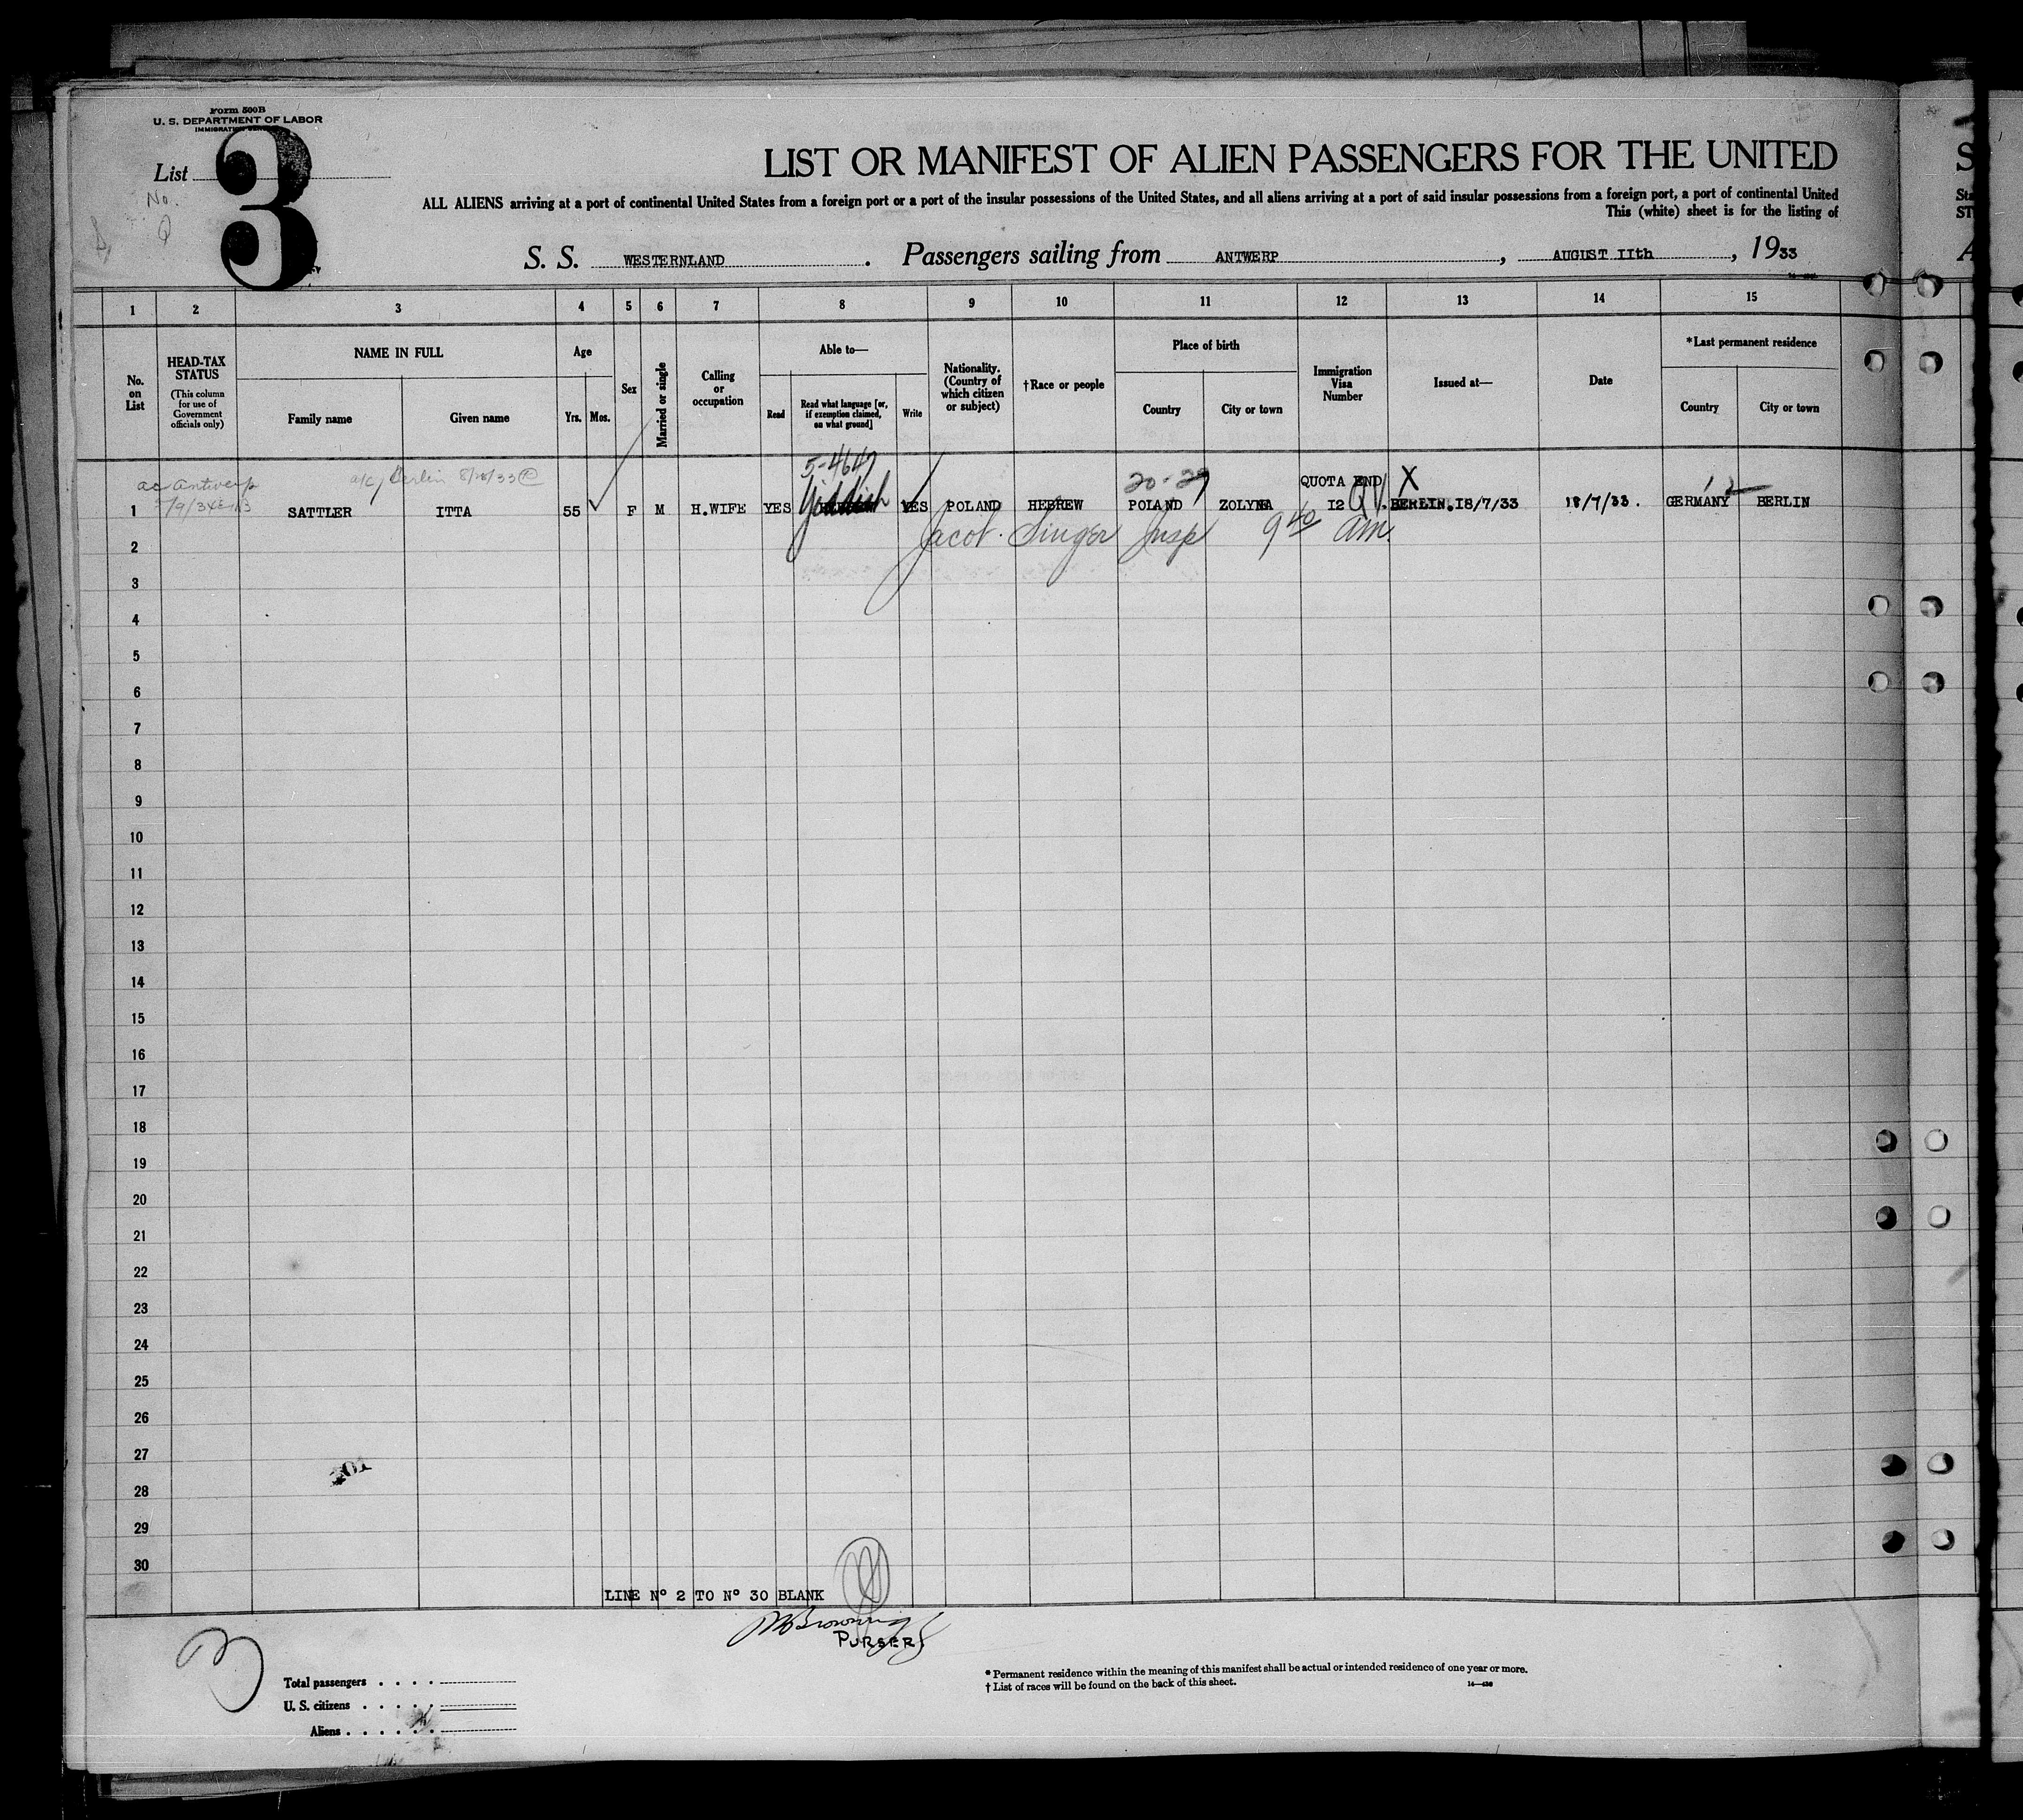 Form 500B
U. S. DEPARTMENT OF LABOR
IMMIGRATION
List 3
No.
LIST OR MANIFEST OF ALIEN PASSENGERS FOR THE UNITED
ALL ALIENS arriving at a port of continental United States from a foreign port or a port of the insular possessions of the United States, and all aliens arriving at a port of said insular possessions from a foreign port, a port of continental United
This (white) sheet is for the listing of
S. S. WESTERNLAND. Passengers sailing from ANTWERP, AUGUST IIth, 1933
1 2 3 4 5 6 7 8 9 10 11 12 13 14 15
No. on List
HEAD-TAX STATUS
(This column for use of Government officials only)
NAME IN FULL
Family name Given name
Age
Yrs. Mos.
Sex
Married or single
Calling or occupation
Able to—
Read
Read what language [or, if exemption claimed, on what ground]
Write
Nationality. (Country of which citizen or subject)
†Race or people
Place of birth
Country City or town
Immigration Visa Number
Issued at—
Date
*Last permanent residence
Country City or town
a/c Berlin 8/ /33
5-4647
20-29
QUOTA END
X
12
ac Antwerp
1 SATTLER ITTA 55 F M H.WIFE YES Yiddish YES POLAND HEBREW POLAND I2 QV. BERLIN.I8/7/33 18/7/33. GERMANY BERLIN
2 Jacob Singer Insp 9 40 am.
3
4
5
6
7
8
9
10
11
12
13
14
15
16
17
18
19
20
21
22
23
24
25
26
27
28
29
30
LINE Nº 2 TO Nº 30 BLANK
PURSER
3
Total passengers
U. S. citizens
Aliens
* Permanent residence within the meaning of this manifest shall be actual or intended residence of one year or more.
† List of races will be found on the back of this sheet.